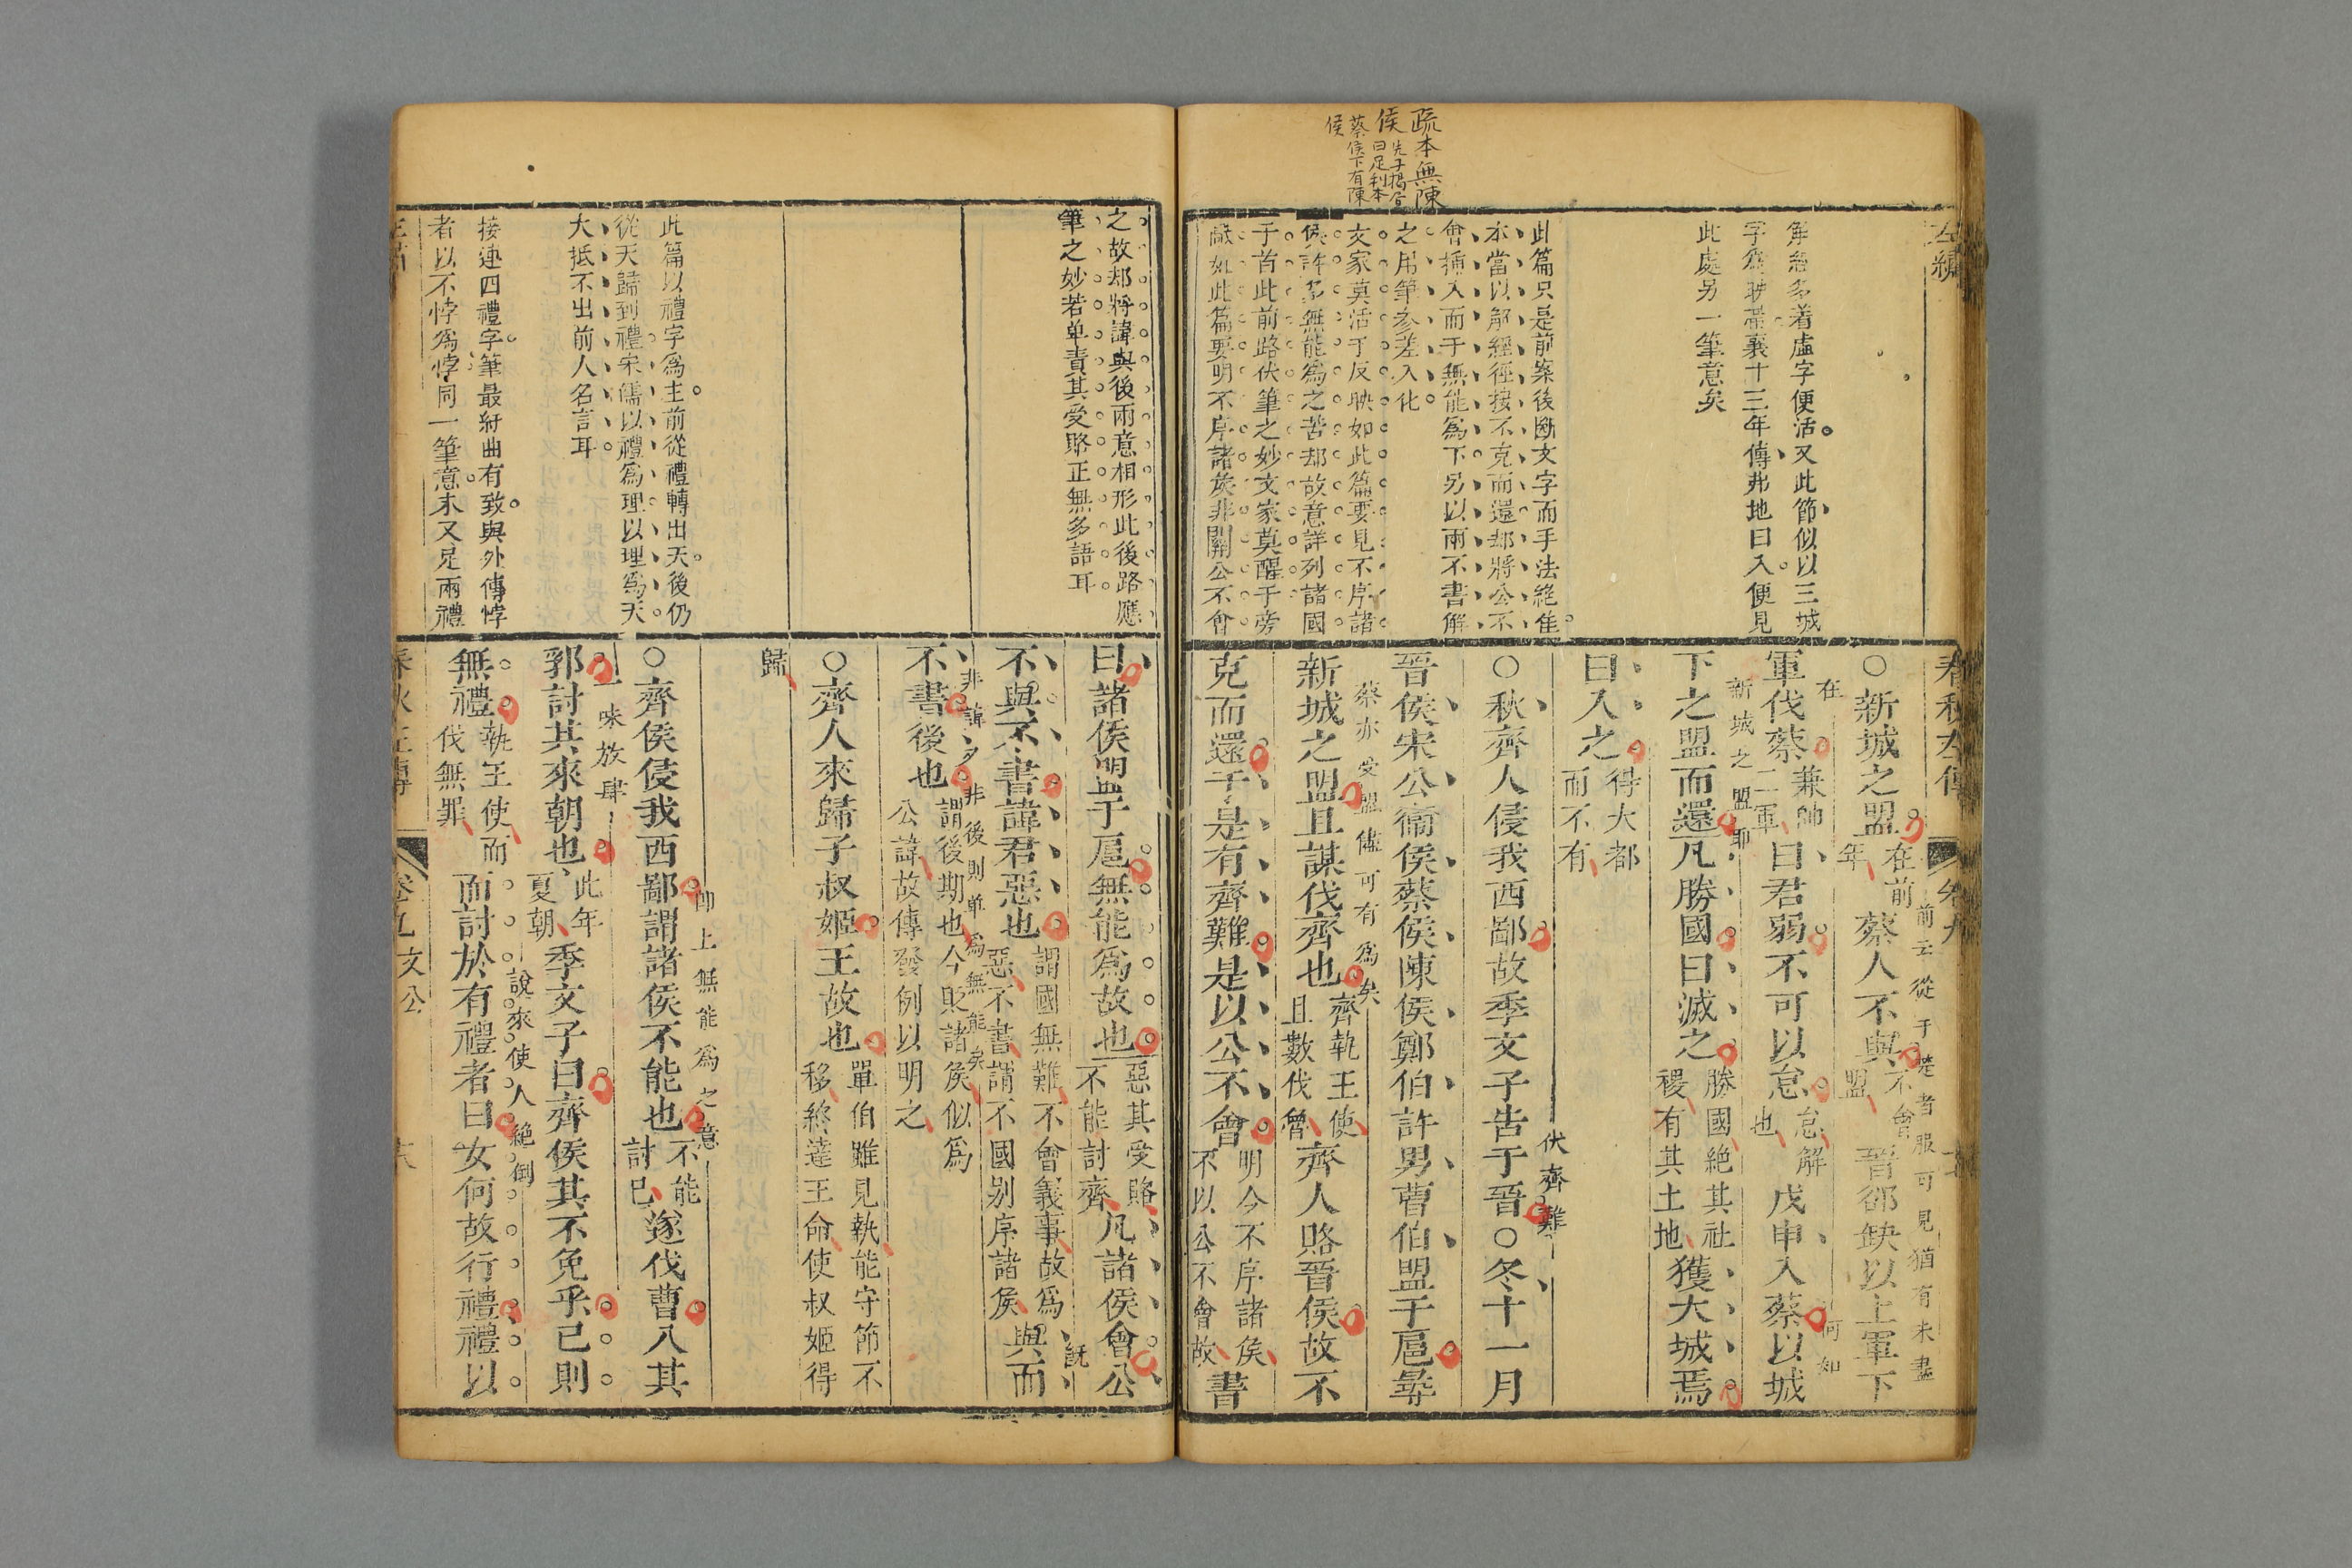 疏本無陳
侯
先子揭合
曰足利本
蔡侯下有陳
侯
左繡
解經多着虛字便活又此節似以三城
字為映帶襄十三年傳弗地曰入便見
此處另一筆意矣
此篇只是前案後斷文字而手法絕佳
本當以解經徑接不克而還却將公不
會插入而于無能為下另以兩不書解
之用筆參差入化
文家莫活于反映如此篇要見不序諸
侯許多無能為之苦却故意詳列諸國
于首此前路伏筆之妙文家莫醒于旁
敲如此篇要明不序諸侯非關公不會
春秋左傳
卷九
○新城之盟
在前
年
蔡人不與
不會
盟
晉郤缺以上軍下
前云從于楚者服可見猶有未盡
在
軍伐蔡
兼帥
二軍
曰君弱不可以怠
怠解
也
戊申入蔡以城
何如
下之盟而還凡勝國曰滅之
勝國絕其社
稷有其土地
獲大城焉
新城之盟耶
曰入之
得大都
而不有
○秋齊人侵我西鄙故季文子告于晉○冬十一月
伏齊難
晉侯宋公衞侯蔡侯陳侯鄭伯許男曹伯盟于扈尋
新城之盟且謀伐齊也
齊執王使
且數伐魯
齊人賂晉侯故不
蔡亦受盟儘可有為矣
克而還于是有齊難是以公不會
明今不序諸侯
不以公不會故
書
之故却將諱與後兩意相形此後路應
筆之妙若单責其受賂正無多語耳
此篇以禮字為主前從禮轉出天後仍
從天歸到禮宋儒以禮為理以理為天
大抵不出前人名言耳
接連四禮字筆最紆曲有致與外傳悖
者以不悖為悖同一筆意末又足兩禮
曰諸侯盟于扈無能為故也
惡其受賂
不能討齊
凡諸侯會公
不與不書諱君惡也
謂國無難不會義事故為
惡不書謂不國别序諸侯
與而
既
不書後也
謂後期也今貶諸侯似為
公諱故傳發例以明之
非諱夕非後則单為無能矣
○齊人來歸子叔姬王故也
單伯雖見執能守節不
移終達王命使叔姬得
歸
○齊侯侵我西鄙謂諸侯不能也
不能
討已
遂伐曹入其
即上無能為之意
郛討其來朝也
此年
夏朝
季文子曰齊侯其不免乎已則
一味放肆
無禮
執王使而
伐無罪
而討於有禮者曰女何故行禮禮以
說來使人絕倒
春秋左傳
卷九
文公